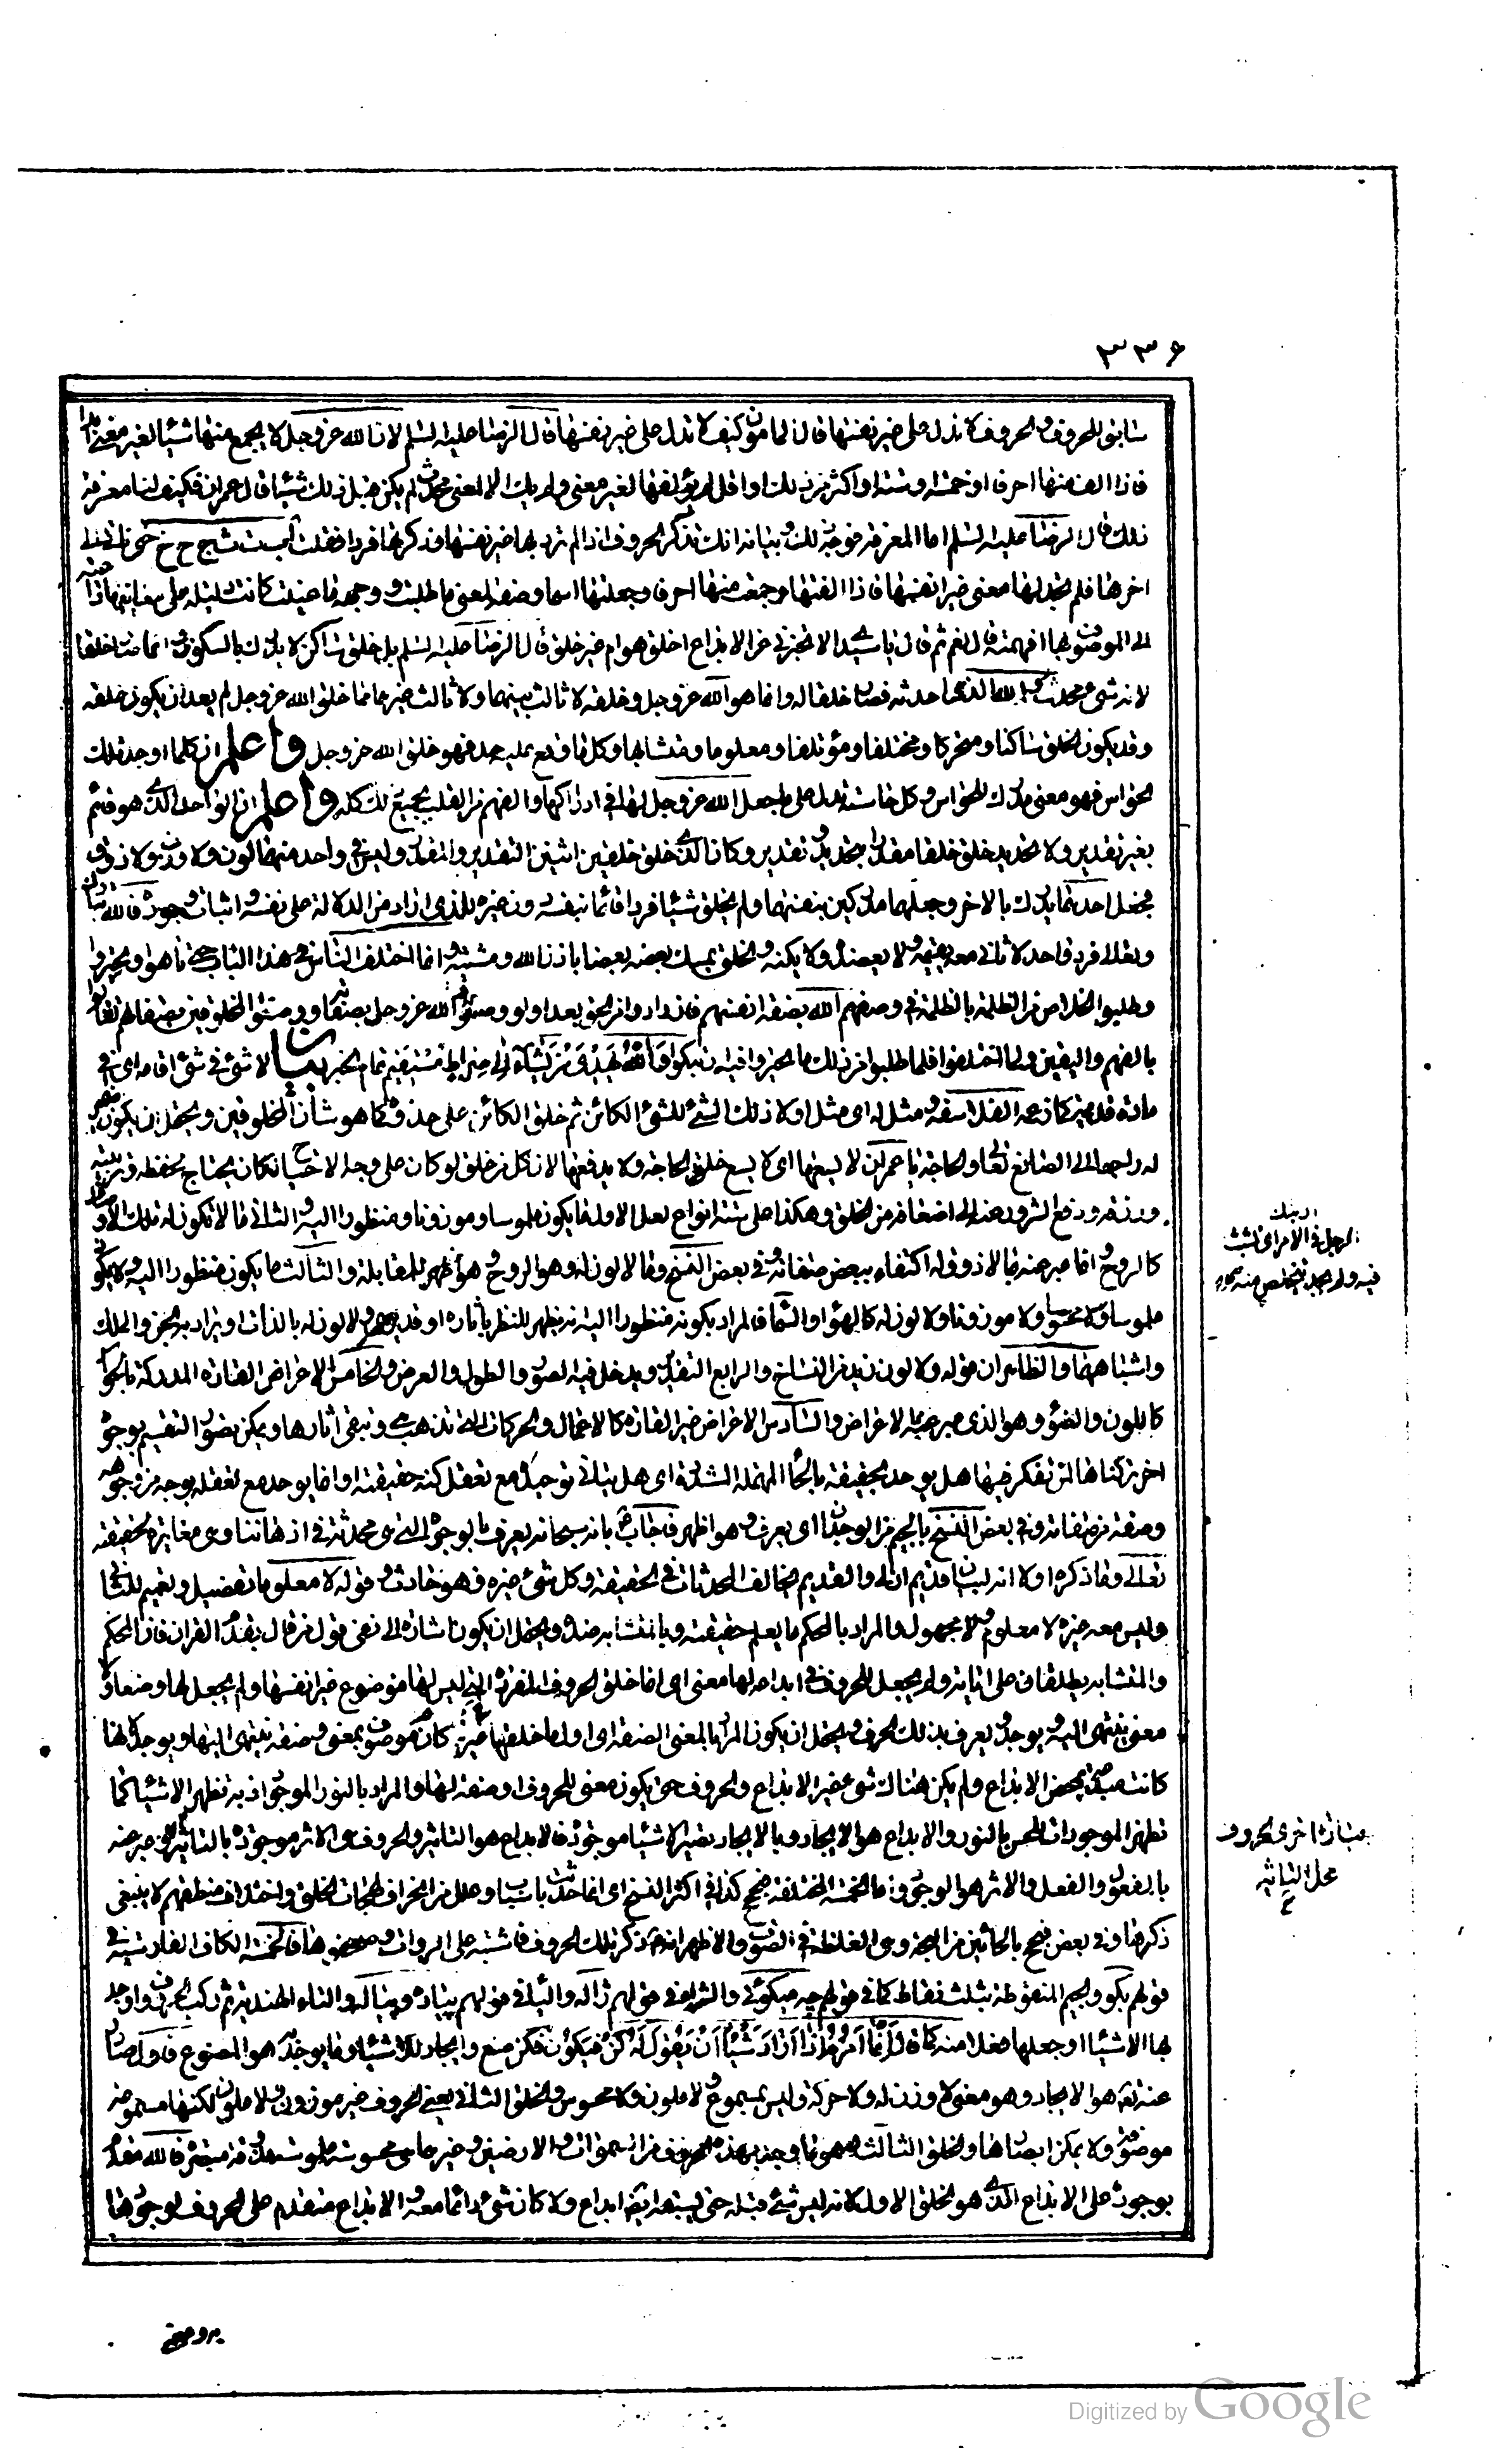 ٣٣٦
سابق للحروف والحروف لا تدل على غير نفسها قال المأمون كيف لا تدل على غير نفسها قال الرضا عليه السلم لان الله عز وجل لا يجمع منها شيئا لغير معنى ابدا
فاذا الف منها احرفا اربعة او خمسة او ستة او اكثر من ذلك او اقل لم يؤلفها لغير معنى ولم يك الا لمعنى محدث لم يكن قبل ذلك شيئا قال عمران فكيف لنا معرفة
ذلك قال الرضا عليه السلم اما المعرفة فوجه ذلك وبيانه انك تذكر الحروف اذا لم ترد بها غير نفسها ذكرتها فردا فقلت ا ب ت ث ج ح خ حتى تاتي على
اخرها فلم تجد لها معنى غير انفسها فاذا الفتها وجمعت منها احرفا وجعلتها اسما وصفة لمعنى ما طلبت ووجه ما عنيت كانت دليلة على معانيها داعية
الى الموصوف بها افهمته قال نعم
ثم قال يا سيدي الا تخبرني عن الابداع اخلق هو ام غير خلق قال الرضا عليه السلم بل خلق ساكن لا يدرك بالسكون وانما صار خلقا
لانه شيء محدث والله الذي احدثه فصار خلقا له وانما هو الله عز وجل وخلقه لا ثالث بينهما ولا ثالث غيرهما فما خلق الله عز وجل لم يعد ان يكون خلقه
وقد يكون الخلق ساكنا ومتحركا ومختلفا ومؤتلفا ومعلوما ومتشابها وكل ما وقع عليه حد فهو خلق الله عز وجل واعلم ان كلما اوجدتك
الحواس فهو معنى مدرك للحواس وكل حاسة تدل على ما جعل الله عز وجل لها في ادراكها والفهم من القلب بجميع ذلك كله واعلم ان الواحد الذي هو قائم
بغير تقدير ولا تحديد خلق خلقا مقدرا بتحديد وتقدير وكان الذي خلق خلقين اثنين التقدير والمقدر وليس في واحد منهما لون ولا وزن ولا ذوق
فجعل احدهما يدرك بالاخر وجعلهما مدركين بنفسهما ولم يخلق شيئا فردا قائما بنفسه دون غيره للذي اراد من الدلالة على نفسه واثبات وجوده فالله تبارك
وتعالى فرد واحد لا ثاني معه يقيمه ولا يعضده ولا يكنه والخلق يمسك بعضه بعضا باذن الله ومشيته وانما اختلف الناس في هذا الباب حتى تاهوا وتحيروا
وطلبوا الخلاص من الظلمة بالظلمة في وصفهم الله بصفة انفسهم فازدادوا من الحق بعدا ولو وصفوا الله عز وجل بصفاته ووصفوا المخلوقين بصفاتهم لقالوا
بالفهم واليقين ولما اختلفوا فلما طلبوا من ذلك ما تحيروا فيه ارتبكوا والله يهدي من يشاء الى صراط مستقيم تمام الخبر بيان لا شيء في شيء اقامه اي في
مادة قديمة كما زعمه الفلاسفة ومثله له اي مثل اولا ذلك الشيء للشيء الكائن ثم خلق الكائن على حذوه كما هو شأن المخلوقين ويحتمل ان يكون ضمير
له راجعا الى الصانع تعالى والحاجة يا عمران لا يسعها اي لا يسع خلق الحاجة ولا يدفعها لان كل من خلق لو كان على وجه الاحتياج لكان يحتاج لحفظه وتربيته
ورزقه ودفع الشرور عنه الى اضعافه من الخلق وهكذا على ستة انواع لعل الاول ما يكون ملموسا وموزونا ومنظورا اليه والثاني ما لا تكون له تلك الاوصاف
كالروح وانما عبر عنه بما لا ذوق له اكتفاء ببعض صفاته وفي بعض النسخ وما لا لون له وهو الروح وهو اظهر للمقابلة والثالث ما يكون منظورا اليه ولا يكون
ملموسا ولا محسوسا ولا موزونا ولا لون له كالهواء او السماء فالمراد بكونه منظورا اليه انه يظهر للنظر باثاره او قد يرى ولا لون له بالذات او يراد به الجن والملك
واشباههما والظاهر ان قوله ولا لون زيد من النساخ والرابع التقدير ويدخل فيه الصور والطول والعرض والخامس الاعراض القارة المدركة بالحواس
كاللون والضوء وهو الذي عبر عنه بالاعراض والسادس الاعراض غير القارة كالاعمال والحركات التي تذهب هي وتبقى اثارها ويمكن تصوير التقسيم بوجوه
اخر تركناها لمن تفكر فيها هل يوحد بحقيقة بالحاء المهملة المشددة اي هل يتأتى توحيده مع تعقل كنه حقيقته او انما يوحد مع تعقله بوجه من وجوهه
وصفة من صفاته وفي بعض النسخ بالجيم من الوجدان اي يعرف وهو اظهر فاجاب ع بانه سبحانه يعرف بالوجوه التي هي محدثة في اذهاننا وهي مغايرة لحقيقته
تعالى وما ذكره اولا انه لبيان انه قديم ازلي والقديم يخالف المحدثات في الحقيقة وكل شيء غيره فهو حادث وقوله لا معلوم تفصيل وتعميم للثاني
وليس معه غيره لا معلوم ولا مجهول والمراد بالمحكم ما يعلم حقيقته وبالمتشابه ضده ويحتمل ان يكون اشارة الى نفي قول من قال بقدم القران فان المحكم
والمتشابه يطلقان على اياته ولم يجعل للحروف في ابداعه لها معنى اي انما خلق الحروف المفردة التي ليس لها موضوع غير انفسها ولم يجعل لها وضعا ولا
معنى ينتهي اليه ويوجد ويعرف بذلك الحرف ويحتمل ان يكون المراد بالمعنى الصفة اي اول ما خلقها كان غير موصوف بمعنى وصفة ينتهي اليها ويوجد لانها
كانت مبدعة بمحض الابداع ولم يكن هناك شيء غير الابداع والحروف حتى يكون معنى للحروف او صفة لها والمراد بالنور الوجود اذ به تظهر الاشياء كما
تظهر الموجودات للحس بالنور والابداع هو الايجاد وبالايجاد تصير الاشياء موجودة فالابداع هو التاثير والحروف هي الاثر موجودة بالتاثير وعبر عنه
بالمفعول والفعل والاثر هو الوجود واما الخمسة المختلفة فبحجج كذا في اكثر النسخ اي انما حدثت باسباب وعلل من انحراف لهجات الخلق واختلاف منطقهم لا ينبغي
ذكرها وفي بعضها فبحح بالحائين من البحة وهي الغلظة في الصوت والاظهر انه ع ذكر تلك الحروف فاشتبه على الرواة وصحفوها فالخمسة الكاف الفارسية في
قولهم بكو والجيم المنقوطة بثلث نقاط كما في قولهم چه ميكوئي والژاء في قولهم ژاله والپاء في قولهم پياده وپياله والتاء الهندية ثم ركب الحروف واوجد
بها الاشياء وجعلها فعلا منه كما قال انما امره اذا اراد شيئا ان يقول له كن فيكون فكن صنع وايجاد للاشياء وما يوجد به هو المصنوع فاول صادر
عنه تعالى هو الايجاد وهو معنى لا وزن له ولا حركة وليس بمسموع ولا ملون ولا محسوس والخلق الثاني يعني الحروف غير موزون ولا ملون لكنها مسموعة
موصوفة ولا يمكن ابصارها والخلق الثالث وهو ما وجد بهذه الحروف من السموات والارضين وغيرهما هي محسوسة ملموسة مذوقة مبصرة فالله مقدم
بوجوده على الابداع الذي هو الخلق الاول لانه ليس شيء قبله حتى يسبقه ايضا ابداع ولا كان شيء دائما معه والابداع متقدم على الحروف لوجودها
ارتبك
الرجل في الامر اي نشب
فيه ولم يكد يتخلص منه